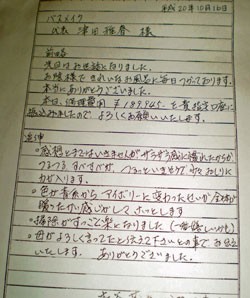 平成20年10月16日
バスメイク
代表 津田 様
前略
先日はお世話になりました。
お陰様できれいなお風呂に毎日つかっております。
本当にありがとうございました。
本日、修理費用 を貴指定口座に
振込みましたので よろしくお願いいたします。
追伸
・感想とまではいきませんが ザラザラ感に慣れたからか
つるつるすべすべが、 いきそうで 少々おしりに
力が入ります。
・色が青系から アイボリーに変わったせいか 全体が
暖ったかい感じがして ホッとします
・掃除がすっごく楽になりました (一番嬉しいかも)
・母がよろしく言ってたと伝えて下さいとの事で お伝え
いたします。 ありがとうございました。